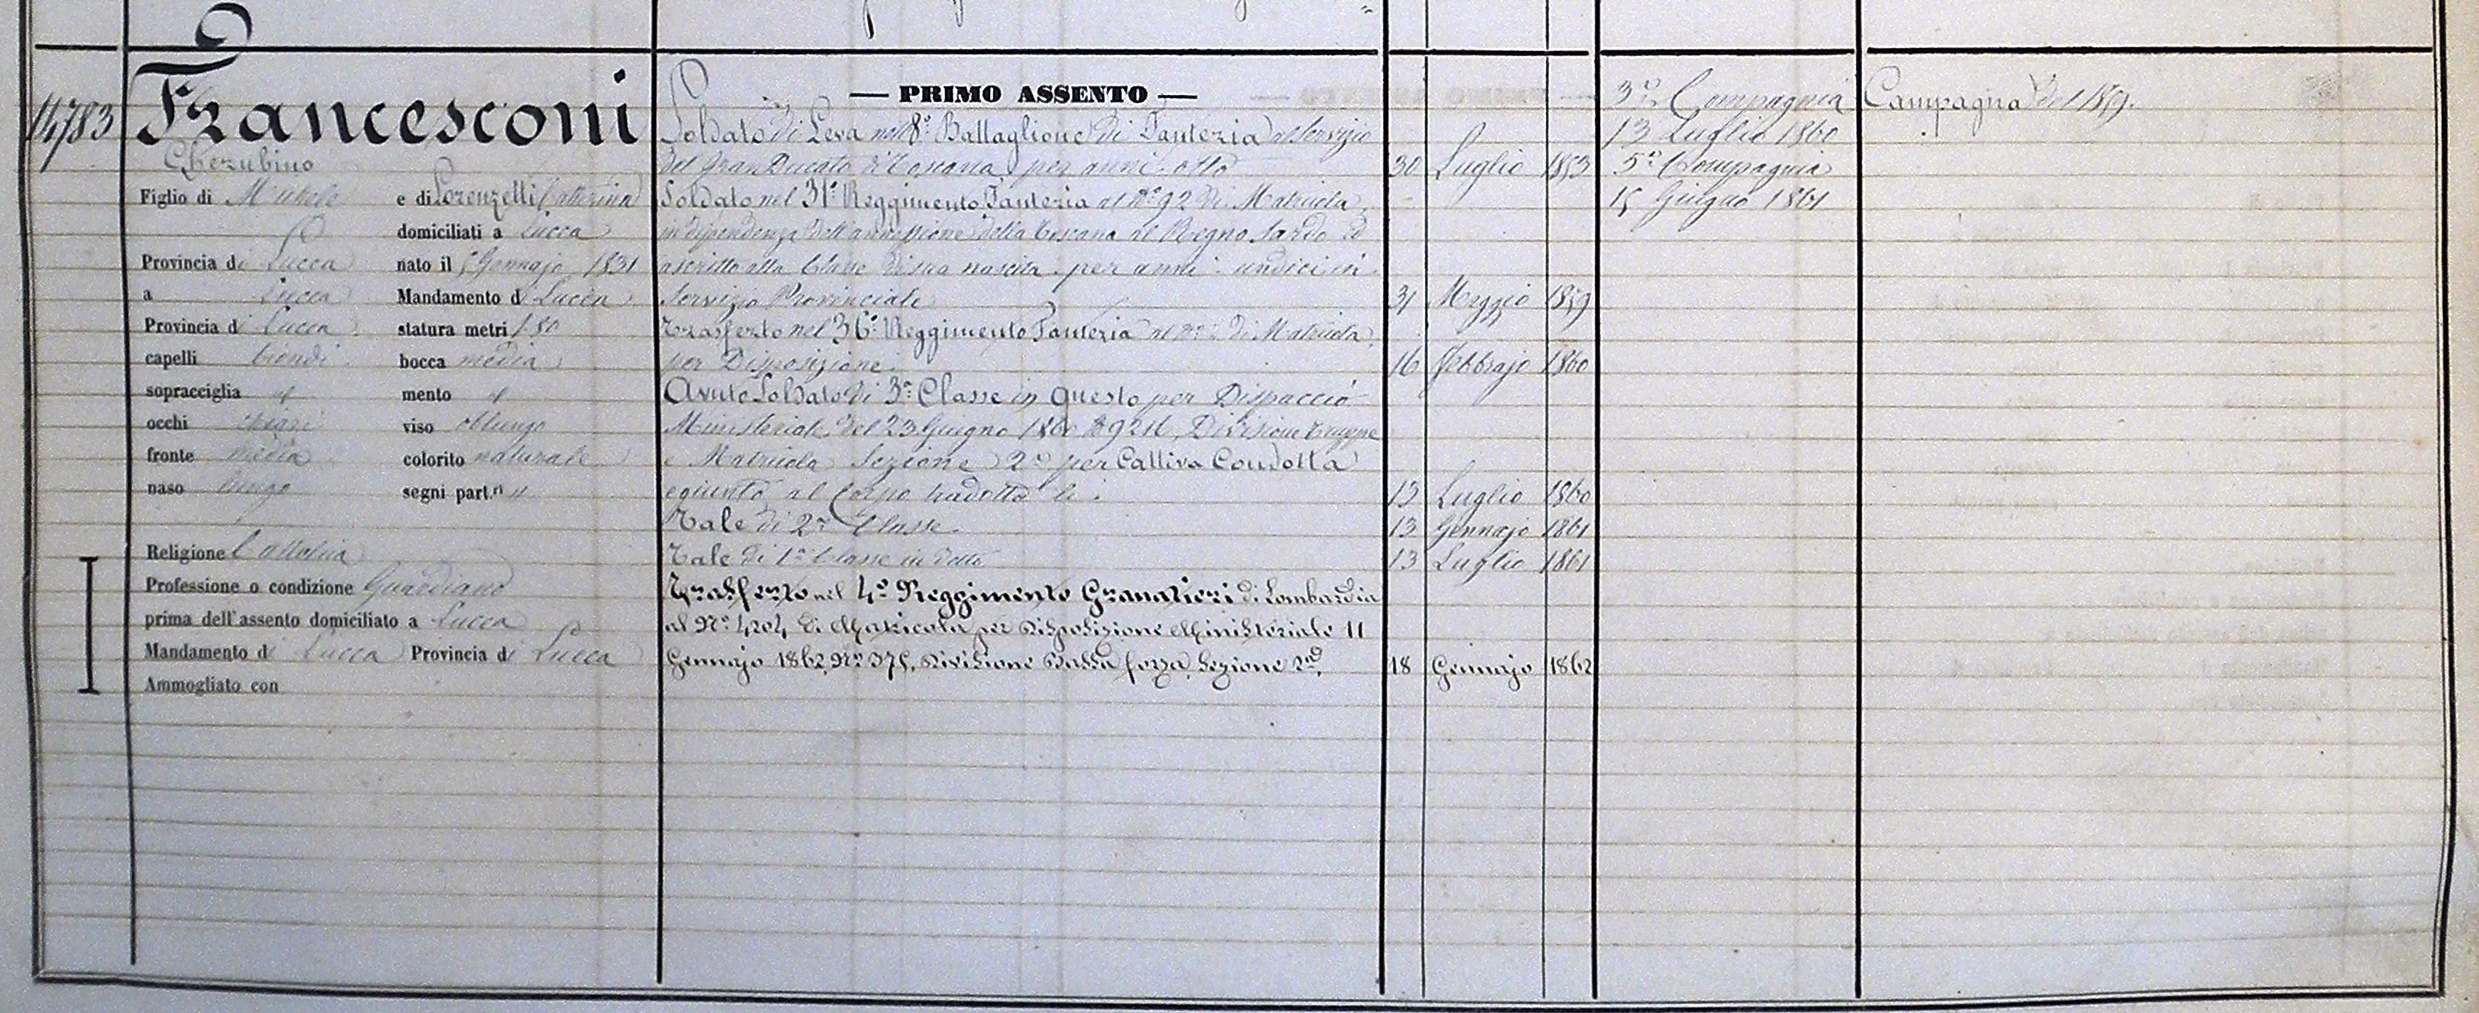 14783
Francesconi
Cherubino
Figlio di Michele e di Lorenzetti Catterina
domiciliati a Lucca
Provincia di Lucca nato il 5 Gennajo 1831
a Lucca Mandamento di Lucca
Provincia di Lucca statura metri 1.80
capelli biondi bocca media
sopracciglia id mento id
occhi chiari viso oblungo
fronte media colorito naturale
naso lungo segni part.ri "
Religione Cattolica
Professione o condizione Guardiano
prima dell'assento domiciliato a Lucca
Mandamento di Lucca Provincia di Lucca
Ammogliato con
— PRIMO ASSENTO —
Soldato di Leva nell' 8° Battaglione di Fanteria al Servizio
del Gran Ducato di Toscana per anni otto 30 Luglio 1853
Soldato nel 31° Reggimento Fanteria al N° 92 di Matricola
in dipendenza dell'annessione della Toscana al Regno Sardo ed
ascritto alla Classe di sua nascita per anni undici in
Servizio Provinciale 31 Maggio 1859
Trasferto nel 36° Reggimento Fanteria al N° di Matricola
per Disposizione 16 Febbrajo 1860
Avuto Soldato di 3a Classe in questo per Dispaccio
Ministeriale del 23 Giugno 1860 N° 9216, Divisione Truppe
e Matricola Sezione 2a per Cattiva Condotta
e giunto al Corpo tradotto li 13 Luglio 1860
Tale di 2a Classe 13 Gennajo 1861
Tale di 1a Classe in detto 13 Luglio 1861
Trasferto nel 4° Reggimento Granatieri di Lombardia
al N° 4204 di Matricola per Disposizione Ministeriale 11
Gennajo 1862 N° 375, Divisione Bassa forza, Sezione 2a, 18 Gennajo 1862
3a Compagnia
13 Luglio 1860
5a Compagnia
15 Giugno 1861
Campagna del 1859.